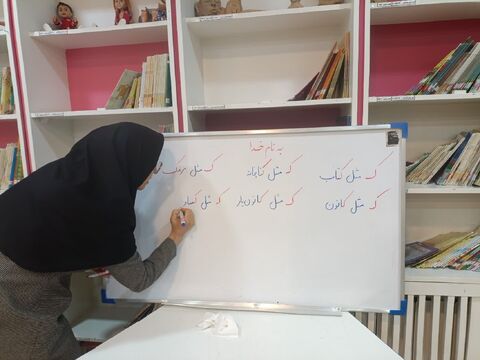 به نام خدا
ک مثل کتاب ک مثل کتابخانه ک مثل کودک
ک مثل کانون ک مثل کانون‌یار ک مثل